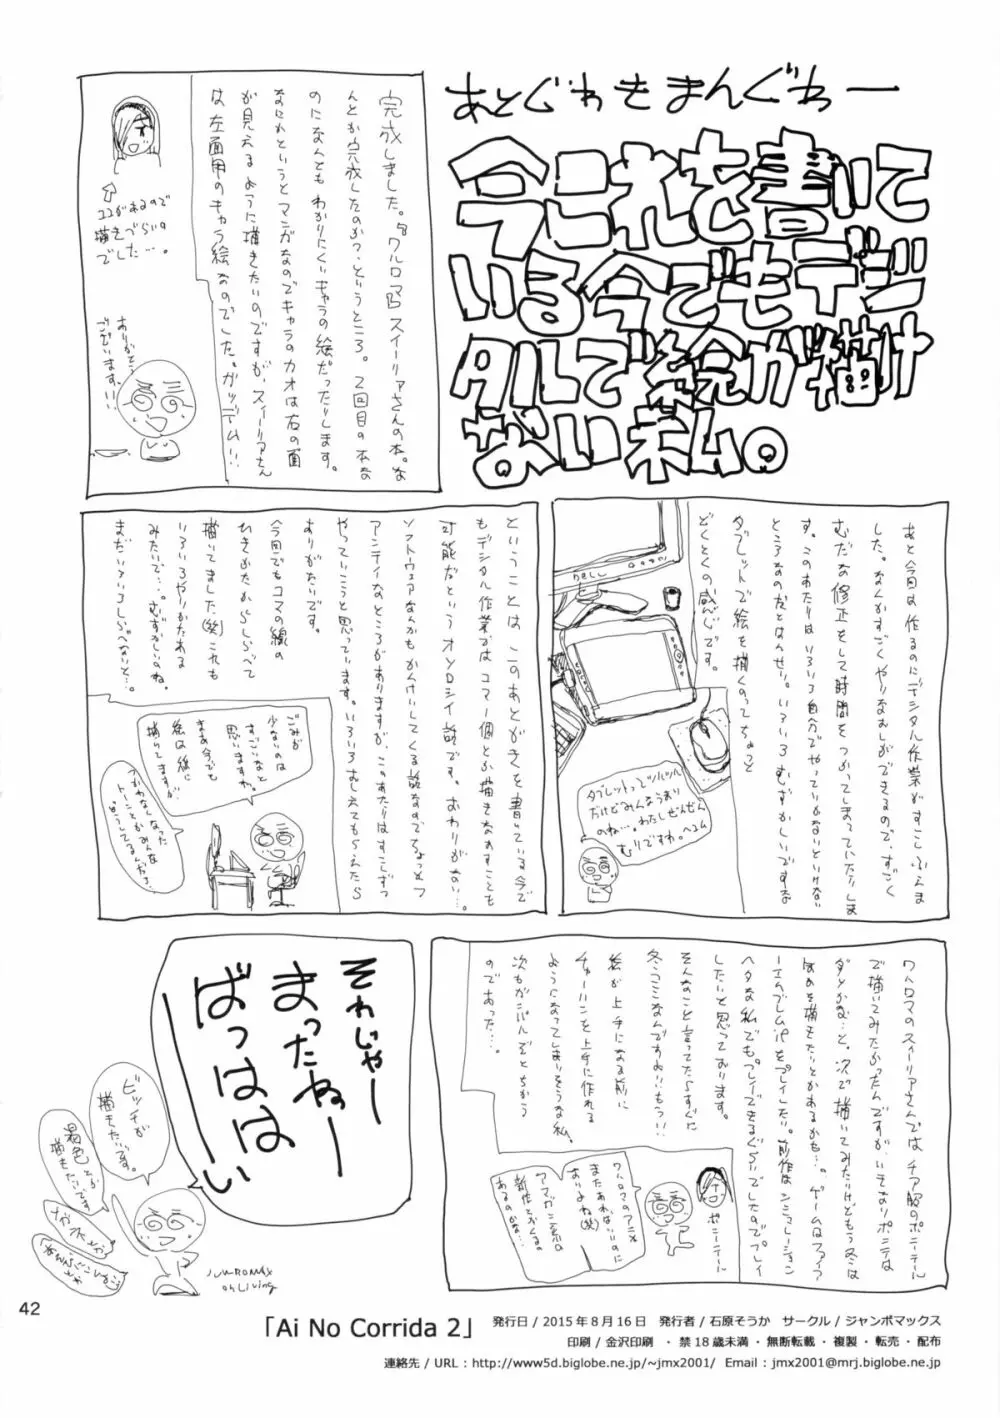 あとぐわきまんぐわー
今これを書いて
いる今でもデジ
タルで絵が描け
ない私。
完成しました。『ワルロマ』スイーリアさんの本。な
んとか完成したのかっ、というところ。2回目の本な
のになんともわかりにくいキャラの絵だったりします。
なにかというとマンガなのでキャラのカオは右の面
が見えるように描きたいのですが、スイーリアさん
は左面用のキャラ絵なのでした。ガッデム!!
ココがあるので
描きづらいの
でした…。
ありがとう
ございます!!
あと今回は作るのにデジタル作業がすこしふえま
した。なんかすごくやりなおしができるので、すごく
むだな修正をして時間をつかってしまっていたりしま
す。このあたりはいろいろ自分でやっていかないといけない
ところなのだとはんせい。いろいろむずかしいですな
タブレットで絵を描くのってちょっと
どくとくの感じです。
DELL
タブレットってツルツル
だけどみんなうまい
のね…。わたしぜんぜん
むりですわ。
ということは、このあとがきを書いている今で
もデジタル作業ではコマ一個とか描きなおすことも
可能だというオソロシイ話です。おわりがない…。
ソフトウェアなんかもかんけいしてくる話なのでちょっとフ
アンティなところがありますが、このあたりはすこしずつ
やっていこうと思っています。いろいろおしえてもらえたら
ありがたいです。
今回でもコマの線の
ひきかたからしらべて
描いてました(笑)これも
いろいろやりかたある
みたいで…。むずかしいのね。
まだいろいろしらべないと…。
ごみが
少ないのは
すごいなと
思いますわ。
まあ今でも
絵は紙に
描いてますが
つかわなくなった
トーンとかみんな
どうしてるんだろ?
ワルロマのスイーリアさんではチア服のポニテール
で描いてみたかったんですが、いきなりポニテは
ダメかな…と。次で描いてみたいけどもう冬は
したいと思っております。
そんなこと言ってたらすぐに
冬コミなんですよ!!もうっ!!
絵が上手になる前に
チャーハンを上手に作れる
ようになってしまいそうな私。
次もガンバルぞとちかう
のであった…。
ポニーテール
ワルロマのアニメ
またあればいいのに
アマガミ系の
新作とかくるの
あるのかな…
それじゃー
まったねー
ばっははーい
ビッチが
描きたいです。
褐色とか
描きたいです
JUMBOMAX
on Living
42
「Ai No Corrida 2」 発行日 / 2015年8月16日 発行者 / 石原そうか サークル / ジャンボマックス
印刷 / 金沢印刷 ・禁18歳未満・無断転載・複製・転売・配布
連絡先 / URL : http://www5d.biglobe.ne.jp/~jmx2001/ Email : jmx2001@mrj.biglobe.ne.jp